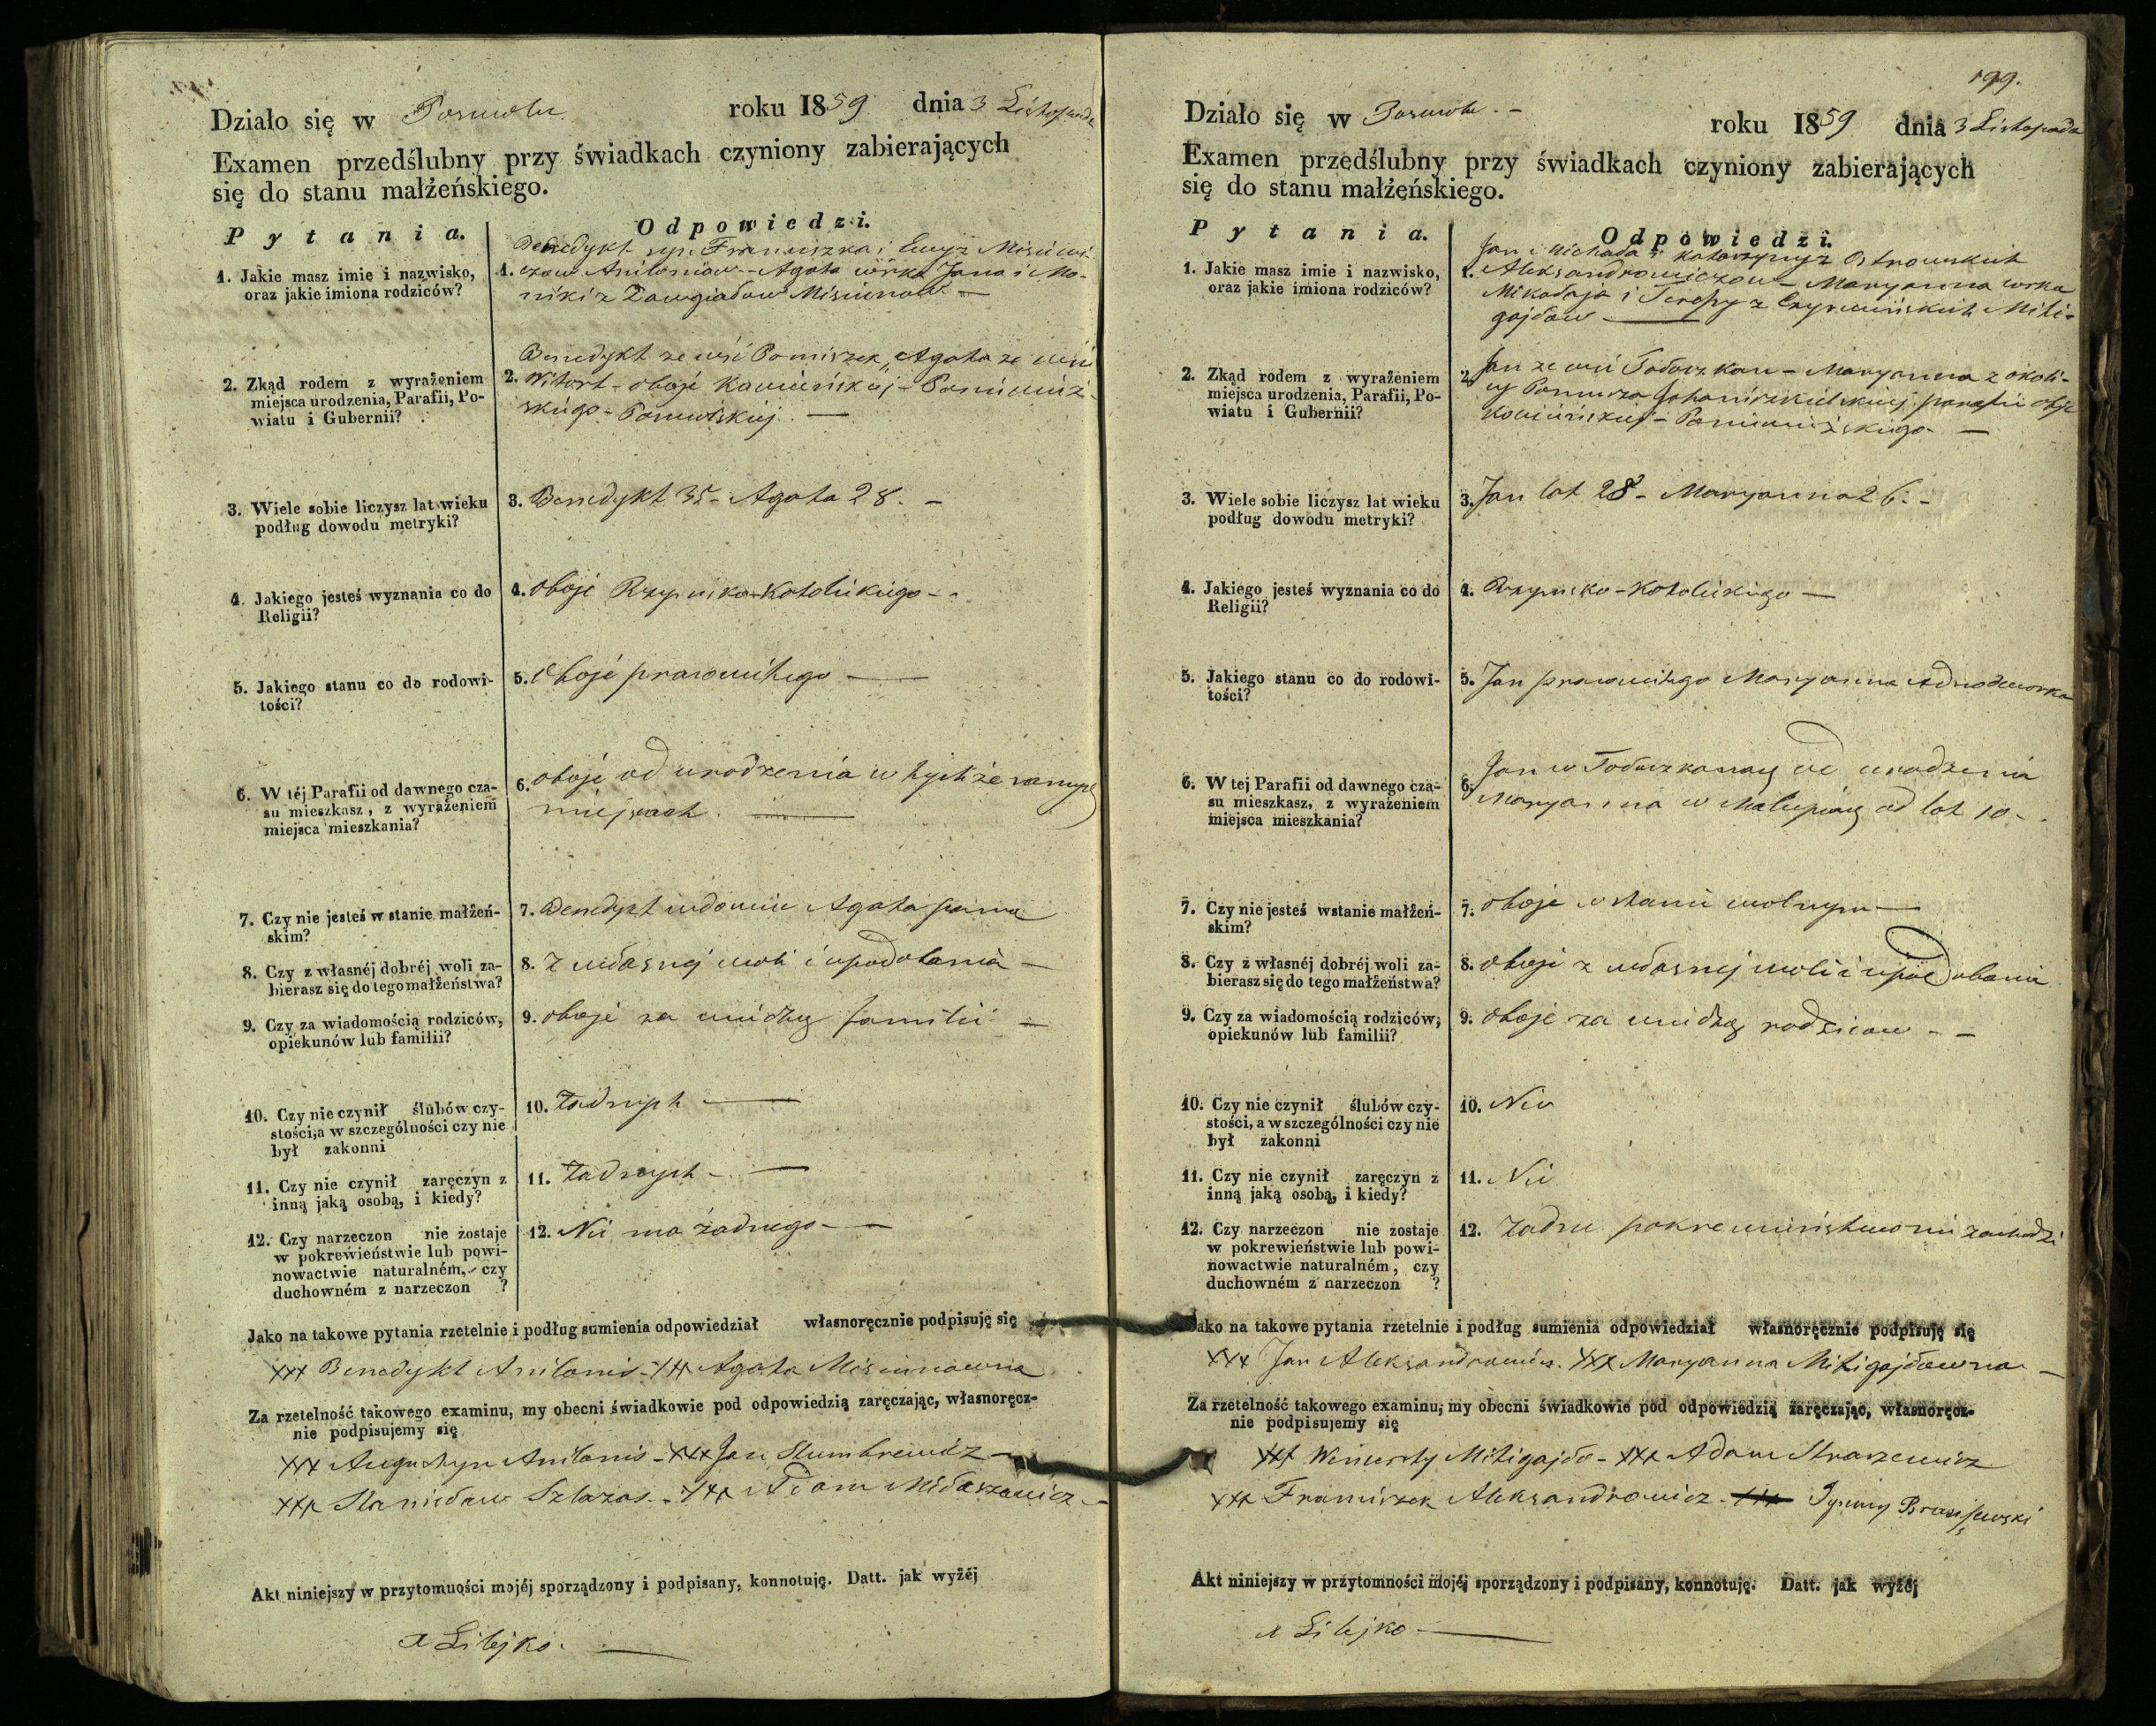 Działo się w Poswolu roku 1859 dnia 3 Listopada
Examen przedślubny przy świadkach czyniony zabierających
się do stanu małżeńskiego.
Pytania. Odpowiedzi.
1. Jakie masz imie i nazwisko,
oraz jakie imiona rodziców?
Benedykt syn Franciszka i
1. Aniloniow - Agata córka Jana i Mo-
niki z Dowgiałow Misiunow —
2. Zkąd rodem z wyrażeniem
miejsca urodzenia, Parafii, Po-
wiatu i Gubernii?
Benedykt ze wsi Agata ze wsi
2. Witort - oboje Kowieńskiej - Poniewież-
skiego - Poswolskiej —
3. Wiele sobie liczysz lat wieku
podług dowodu metryki?
3. Benedykt 35 - Agata 28. -
4. Jakiego jesteś wyznania co do
Religii?
4. oboje Rzymsko-Katolickiego -
5. Jakiego stanu co do rodowi-
tości?
5. Oboje prawowitego —
6. W téj Parafii od dawnego cza-
su mieszkasz, z wyrażeniem
miejsca mieszkania?
6. oboje od urodzenia w tychże samych
miejscach. —
7. Czy nie jesteś w stanie małżeń-
skim?
7. Benedykt wdowiec Agata panna
8. Czy z własnéj dobréj woli za-
bierasz się do tego małżeństwa?
8. Z własnej woli i upodobania —
9. Czy za wiadomością rodziców,
opiekunów lub familii?
9. oboje za wiedzą familii —
10. Czy nie czynił ślubów czy-
stości, a w szczególności czy nie
był zakonni
10. żadnych —
11. Czy nie czynił zaręczyn z
inną jaką osobą, i kiedy?
11. żadnych - —
12. Czy narzeczon nie zostaje
w pokrewieństwie lub powi-
nowactwie naturalném, czy
duchowném z narzeczon ?
12. Nie ma żadnego - —
Jako na takowe pytania rzetelnie i podług sumienia odpowiedział własnoręcznie podpisuję się
xxx Benedykt Anilonis - xxx Agata Misiunowna
Za rzetelność takowego examinu, my obecni świadkowie pod odpowiedzią zaręczając, własnoręcz-
nie podpisujemy się
xxx Augustyn Anilonis - xxx Jan Stumbrewicz —
xxx Stanisław Szlazas - xxx Adam Midaszewicz -
Akt niniejszy w przytomności mojéj sporządzony i podpisany, konnotuję. Datt. jak wyżéj
X Libejko. —
199.
Działo się w Poswolu - roku 1859 dnia 3 Listopada
Examen przedślubny przy świadkach czyniony zabierających
się do stanu małżeńskiego.
Pytania. Odpowiedzi.
1. Jakie masz imie i nazwisko,
oraz jakie imiona rodziców?
Jan Michała i Katarzyny z Ostrowskich
1. Aleksandrowiczow - Maryanna córka
Mikołaja i Teresy z Mili-
gajdow —
2. Zkąd rodem z wyrażeniem
miejsca urodzenia, Parafii, Po-
wiatu i Gubernii?
2. Jan ze wsi - Maryanna z okoli-
cy parafii oboje
Kowieńskiej - Poniewieżskiego —
3. Wiele sobie liczysz lat wieku
podług dowodu metryki?
3. Jan lat 28 - Maryanna 26. -
4. Jakiego jesteś wyznania co do
Religii?
4. Rzymsko-Katolickiego —
5. Jakiego stanu co do rodowi-
tości?
5. Jan prawowitego Maryanna Adnodworka
6. W tej Parafii od dawnego cza-
su mieszkasz, z wyrażeniem
miejsca mieszkania?
6. Jan w od urodzenia
Maryanna w od lat 10 -
7. Czy nie jesteś w stanie małżeń-
skim?
7. oboje w stanie wolnym —
8. Czy z własnéj dobréj woli za-
bierasz się do tego małżeństwa?
8. oboje z własnej woli i upodobania
9. Czy za wiadomością rodziców,
opiekunów lub familii?
9. oboje za wiedzą rodzicow - —
10. Czy nie czynił ślubów czy-
stości, a w szczególności czy nie
był zakonni
10. Nie
11. Czy nie czynił zaręczyn z
inną jaką osobą, i kiedy?
11. Nie
12. Czy narzeczon nie zostaje
w pokrewieństwie lub powi-
nowactwie naturalném, czy
duchowném z narzeczon ?
12. żadne pokrewieństwo nie zachodzi
Jako na takowe pytania rzetelnie i podług sumienia odpowiedział własnoręcznie podpisuję się
xxx Jan Aleksandrowicz. xxx Maryanna Miligajdowna —
Za rzetelność takowego examinu, my obecni świadkowie pod odpowiedzią zaręczając, własnoręcz-
nie podpisujemy się
xxx Wincenty Miligajdo - xxx Adam Straszewicz
xxx Franciszek Aleksandrowicz -
Akt niniejszy w przytomności mojéj sporządzony i podpisany, konnotuję. Datt. jak wyżéj
X Libejko —